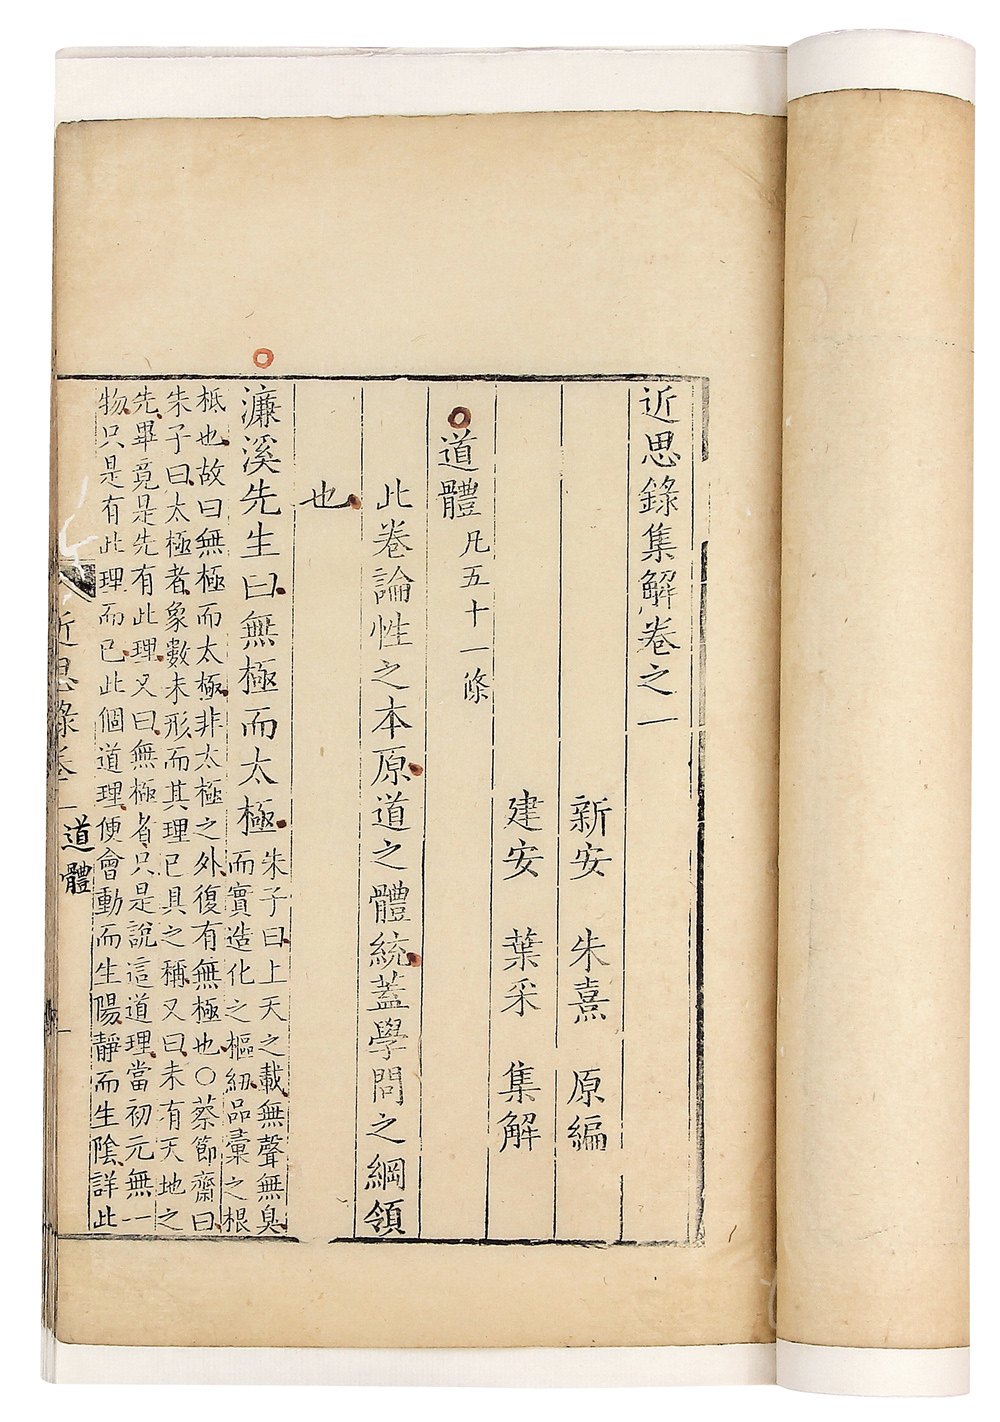 近思錄集解卷之一
新安 朱熹 原編
建安 葉采 集解
道體凡五十一條
此卷論性之本原道之體統蓋學問之綱領
也
濂溪先生曰無極而太極朱子曰上天之載無聲無臭
而實造化之樞紐品彙之根
柢也故曰無極而太極非太極之外復有無極也○蔡節齋曰
朱子曰太極者象數未形而其理已具之稱又曰未有天地之
先畢竟是先有此理又曰無極者只是說這道理當初元無一
物只是有此理而已此個道理便會動而生陽靜而生陰詳此
近思錄卷一 道體 一